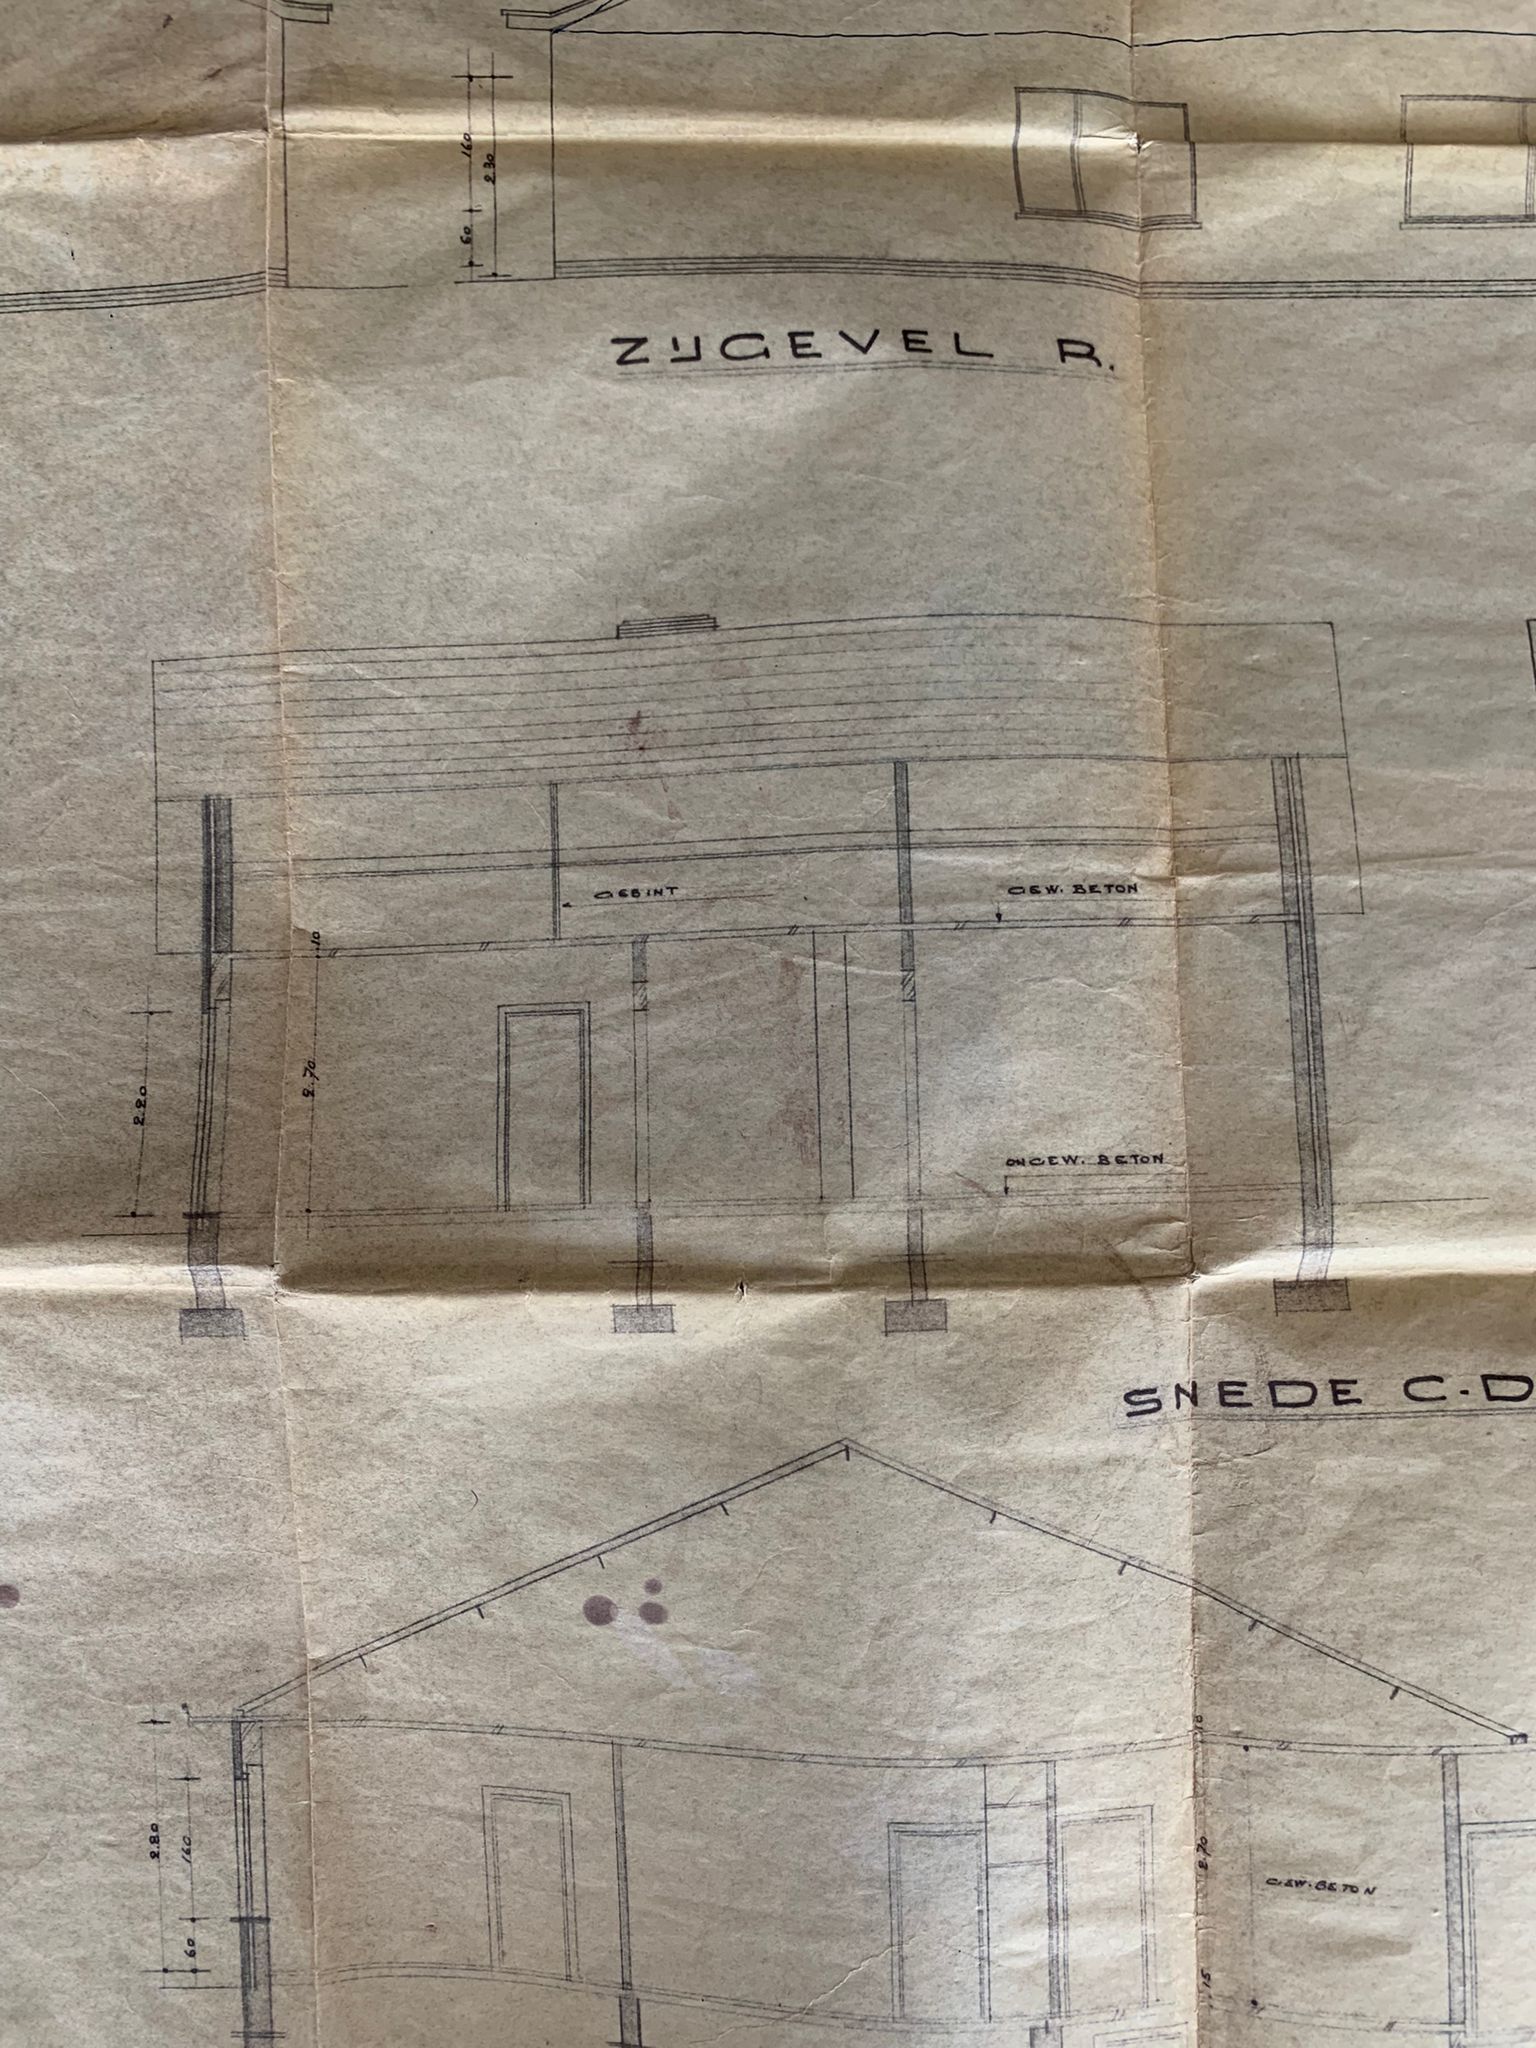 160
2.30
60
ZIJGEVEL R.
GEBINT
GEW. BETON
10
2.20
2.70
ONGEW. BETON
SNEDE C.D
10
2.80
160
2.70
GEW. BETON
60
15